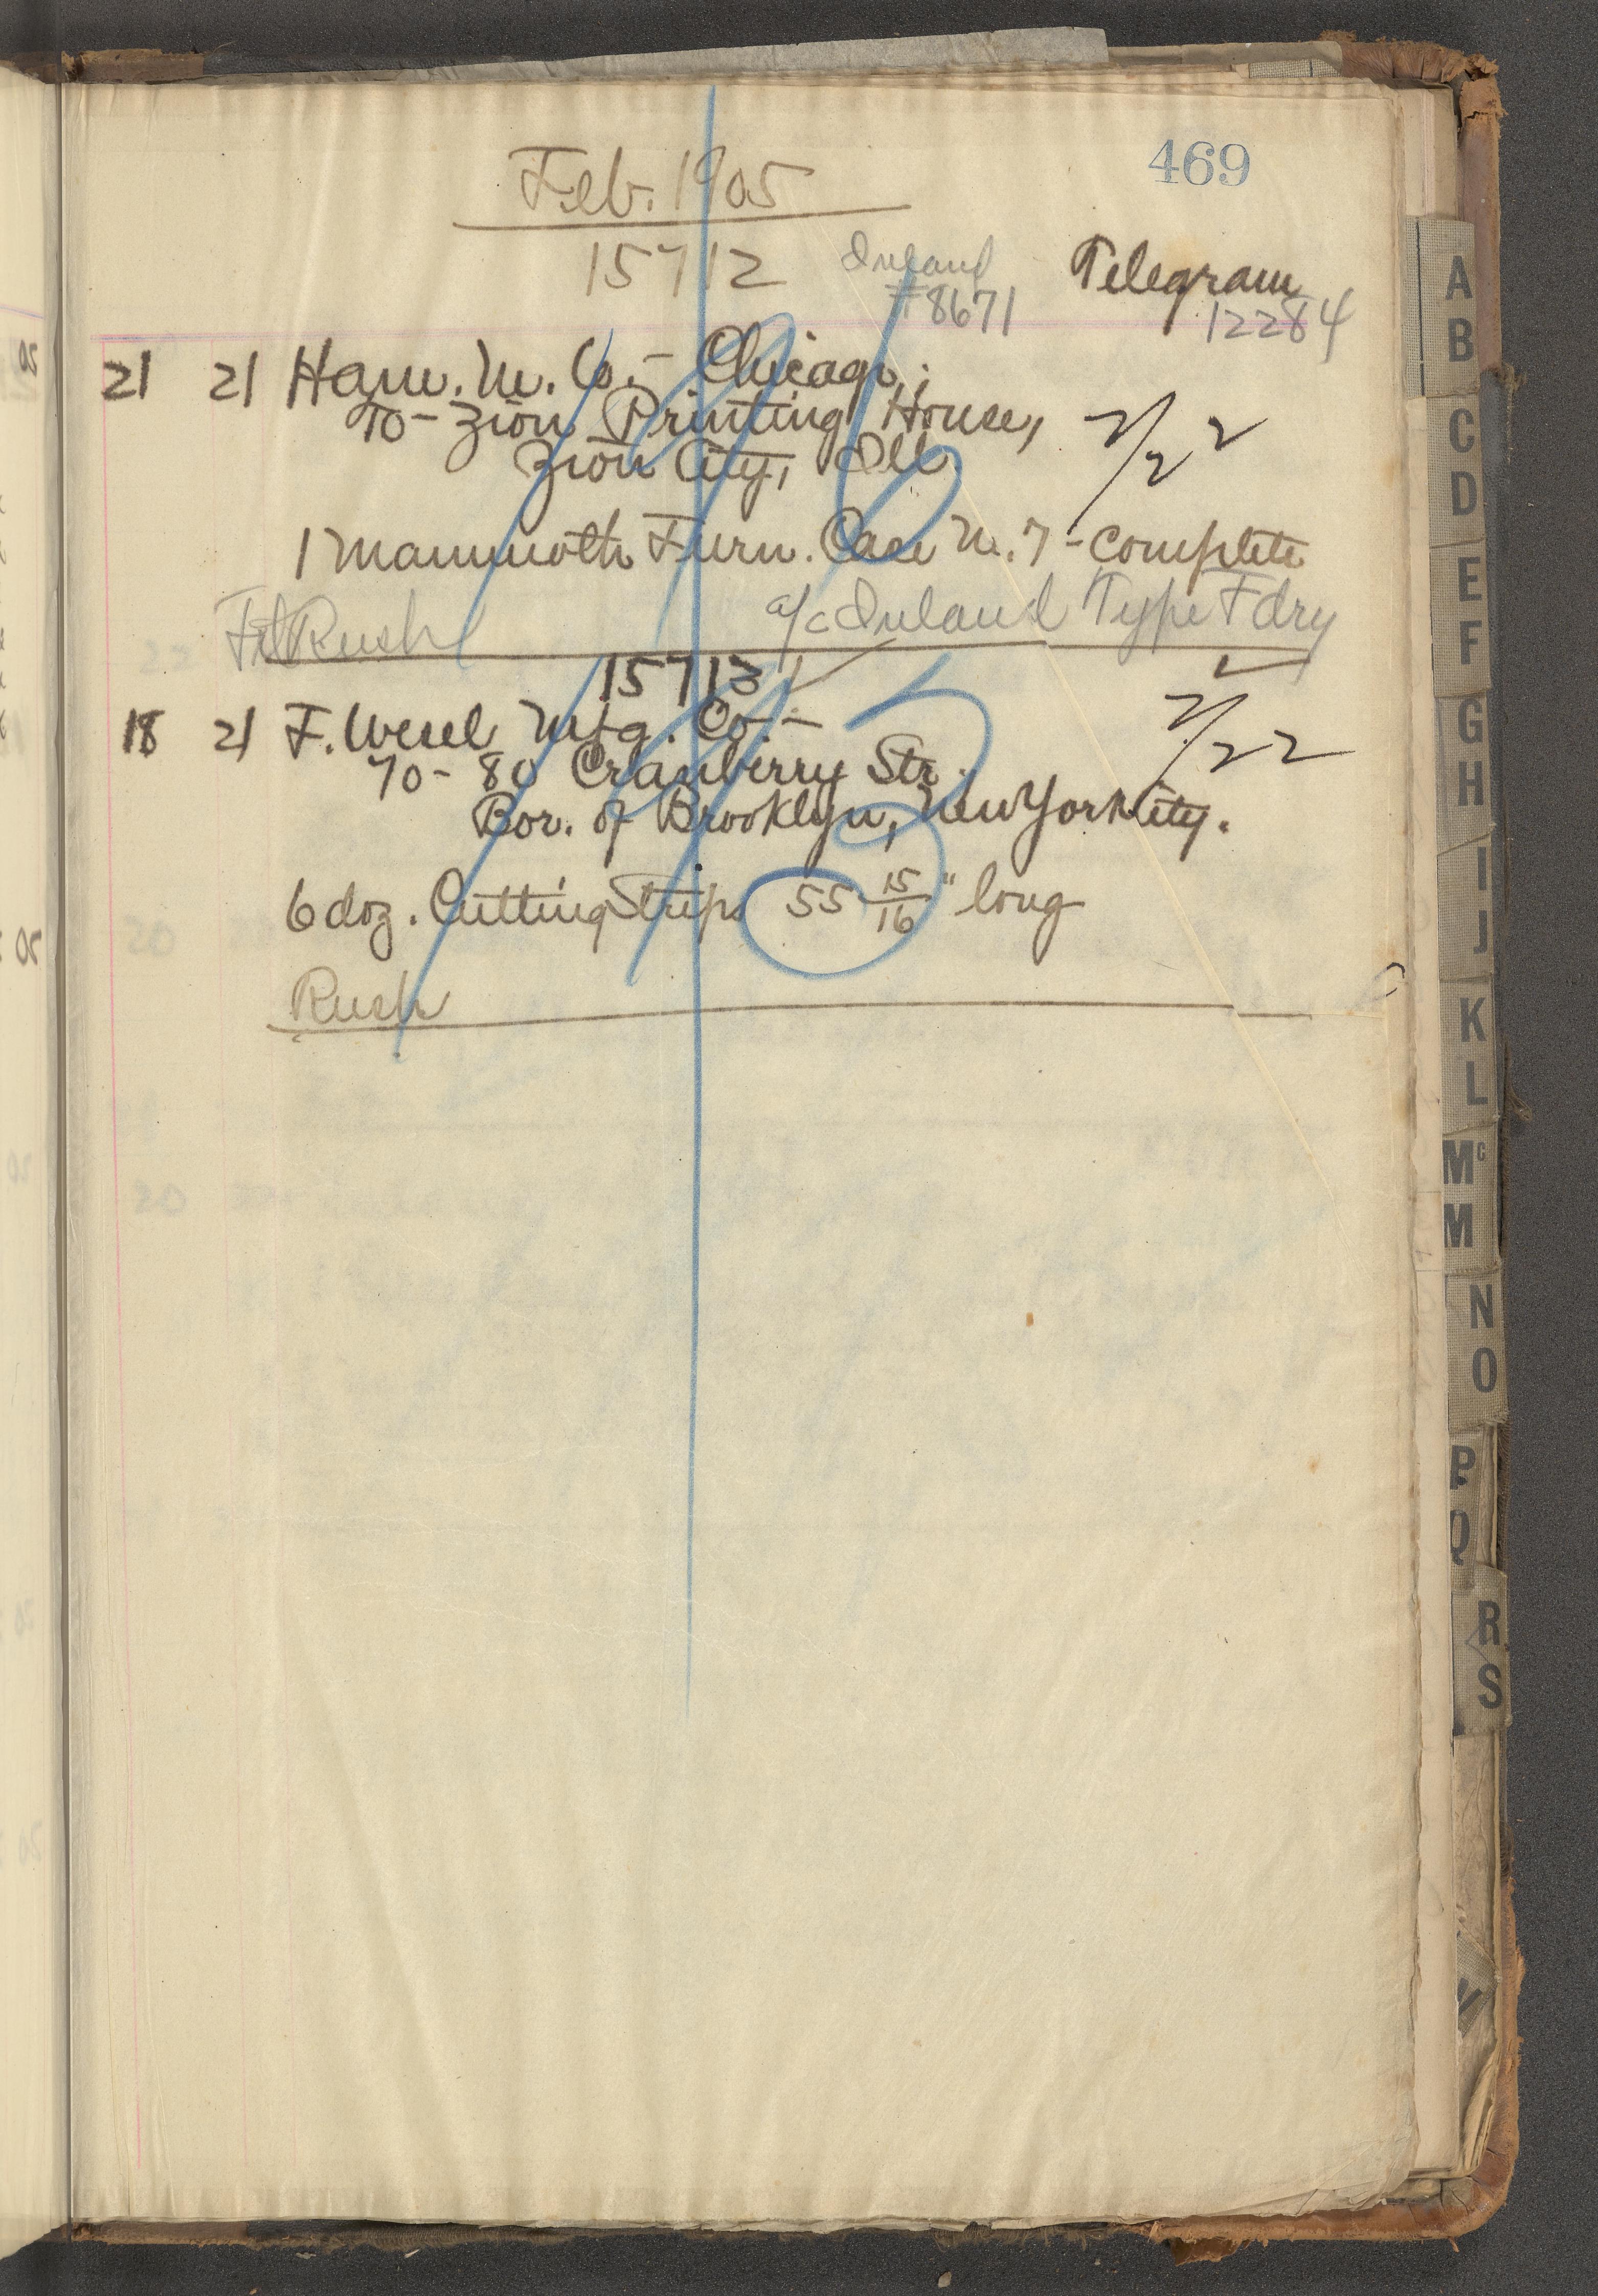 469
Feb. 1905
15712 Inland Telegram
#8671 12284
21 21 Ham. M. Co. - Chicago,
To - Zion Printing House, 2/22
Zion City, Ill.
1 Mammoth Furn. Case No. 7 - complete
Rush a/c Inland Type Fdry
15713
18 21 F. Wesel Mfg. Co. - 2/22
70 - 80 Cranberry Str.
Bor. of Brooklyn, New York City.
6 doz. Cutting Strips 55 15/16" long
Rush
A
B
C
D
E
F
G
H
I
J
K
L
Mc
M
N
O
P
Q
R
S